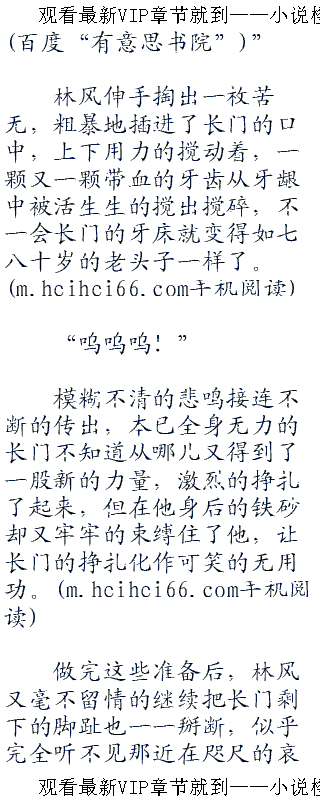 观看最新VIP章节就到——小说检
(百度“有意思书院”)”
林风伸手掏出一枚苦
无，粗暴地插进了长门的口
中，上下用力的搅动着，一
颗又一颗带血的牙齿从牙龈
中被活生生的搅出搅碎，不
一会长门的牙床就变得如七
八十岁的老头子一样了。
(m.hcihci66.com手机阅读)
“呜呜呜！”
模糊不清的悲鸣接连不
断的传出，本已全身无力的
长门不知道从哪儿又得到了
一股新的力量，激烈的挣扎
了起来，但在他身后的铁砂
却又牢牢的束缚住了他，让
长门的挣扎化作可笑的无用
功。(m.hcihci66.com手机阅
读)
做完这些准备后，林风
又毫不留情的继续把长门剩
下的脚趾也一一掰断，似乎
完全听不见那近在咫尺的哀
观看最新VIP章节就到——小说检